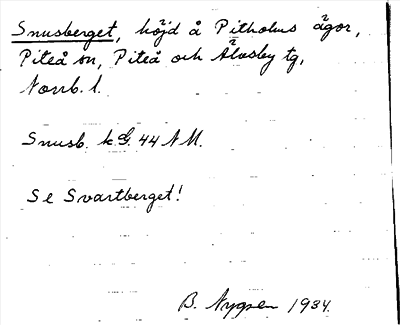 Snusberget, höjd å Pitholms ägor,
Piteå sn, Piteå och Älvsby tg,
Norrb. l.
Snusb. k G. 44 N M.
Se Svartberget!
B. Nygren 1934.